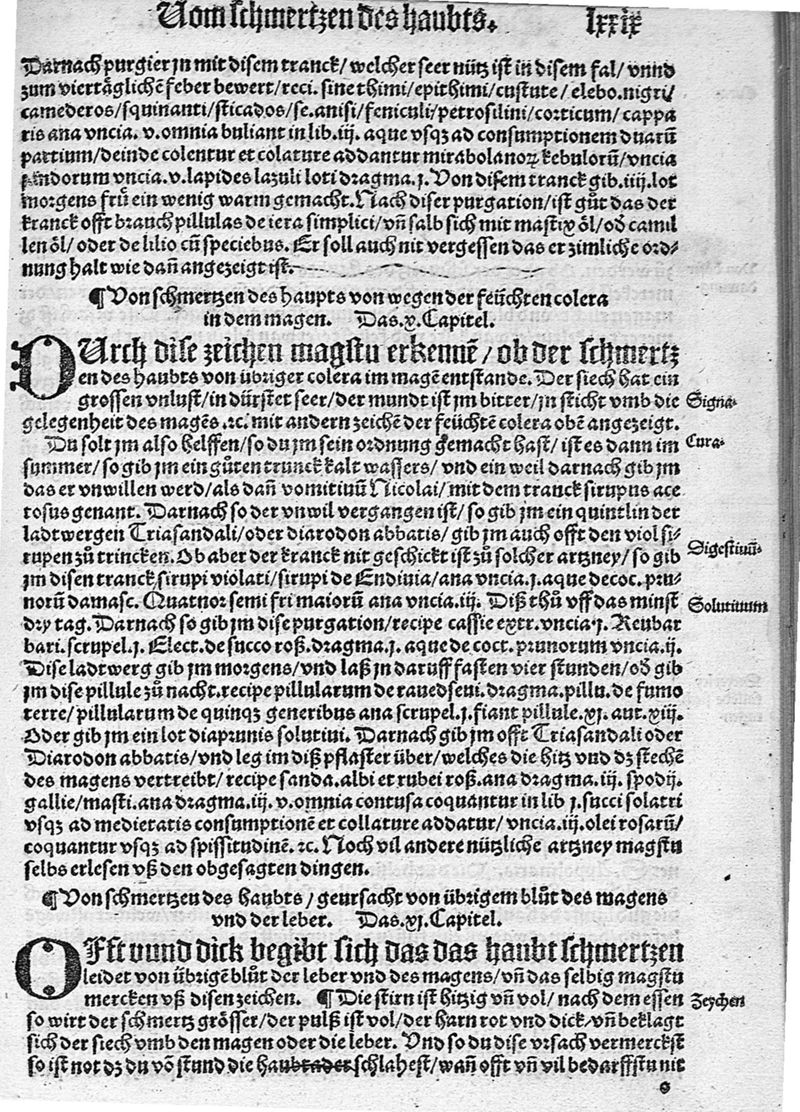 Vom schmertzen des haubts. lxxix
Darnach purgier jn mit disem tranck/ welcher seer nütz ist in disem fal/ vnnd
zum viertäglichẽ feber bewert/ reci. sine thimi/ epithimi/ custute/ elebo. nigri/
camederos/ squinanti/ sticados/ se. anisi/ feniculi/ petrosilini/ corticum/ cappa
ris ana vncia. v. omnia buliant in lib. iij. aque vsqꝫ ad consumptionem duarũ
partium/ deinde colentur et colature addantur mirabolanoꝝ kebulorũ/ vncia
vndorum vncia. v. lapides lazuli loti dragma. j. Von disem tranck gib. iiij. lot
morgens frů ein wenig warm gemacht. Nach diser purgation/ ist gůt das der
kranck offt brauch pillulas de iera simplici/ vñ salb sich mit mastix öl/ oð camil
len öl/ oder de lilio cũ speciebus. Er soll auch nit vergessen das er zimliche ord⸗
nung halt wie dañ angezeigt ist.
¶ Von schmertzen des haupts von wegen der feüchten colera
in dem magen. Das. x. Capitel.
DUrch dise zeichen magstu erkennẽ/ ob der schmertz
en des haubts von übriger colera im magẽ entstande. Der siech hat ein
grossen vnlust/ in dürstet seer/ der mundt ist jm bitter/ jn sticht vmb die Signa.
gelegenheit des magẽs. ⁊c. mit andern zeichẽ der feüchtẽ colera obẽ angezeigt.
Du solt jm also helffen/ so du jm sein ordnung gemacht hast/ ist es dann im Cura.
summer/ so gib jm ein gůten trunck kalt wassers/ vnd ein weil darnach gib jm
das er vnwillen werd/ als dañ vomitiuũ Nicolai/ mit dem tranck sirupus ace
tosus genant. Darnach so der vnwil vergangen ist/ so gib jm ein quintlin der
ladtwergen Triasandali/ oder diarodon abbatis/ gib jm auch offt den viol si⸗
rupen zů trincken. Ob aber der kranck nit geschickt ist zů solcher artzney/ so gib Digestiuũ.
jm disen tranck sirupi violati/ sirupi de Endiuia/ ana vncia. j. aque decoc. pru⸗
norũ damasc. Quatuor semi fri maiorũ ana vncia. iij. Diß thů vff das minst Solutiuum
dry tag. Darnach so gib jm dise purgation/ recipe cassie extr. vncia. j. Reubar
bari. scrupel. j. Elect. de succo roß. dragma. j. aque de coct. prunorum vncia. ij.
Dise ladtwerg gib jm morgens/ vnd laß in daruff fasten vier stunden/ oð gib
jm dise pillule zů nacht. recipe pillularum de rauedseui. dragma. pillu. de fumo
terre/ pillularum de quinqꝫ generibus ana scrupel. j. fiant pillule. xj. aut. xiij.
Oder gib jm ein lot diaprunis solutiui. Darnach gib jm offt Triasandali oder
Diarodon abbatis/ vnd leg im diß pflaster über/ welches die hitz vnd dꝫ stechẽ
des magens vertreibt/ recipe sanda. albi et rubei roß. ana dragma. iij. spodij.
gallie/ masti. ana dragma. iij. v. omnia contusa coquantur in lib j. succi solatri
vsqꝫ ad medietatis consumptionẽ et collature addatur/ vncia. iij. olei rosarũ/
coquantur vsqꝫ ad spissitudinẽ. ⁊c. Noch vil andere nützliche artzney magstu
selbs erlesen vß den obgesagten dingen.
¶ Von schmertzen des haubts/ geursacht von übrigem blůt des magens
vnd der leber. Das. xj. Capitel.
OFft vnnd dick begibt sich das das haubt schmertzen
leidet von übrigẽ blůt der leber vnd des magens/ vñ das selbig magstu
mercken vß disen zeichen. ¶ Die stirn ist hitzig vñ vol/ nach dem essen Zeychen
so wirt der schmertz grösser/ der pulß ist vol/ der harn rot vnd dick/ vñ beklagt
sich der siech vmb den magen oder die leber. Vnd so du dise vrsach vermerckst
so ist not dꝫ du võ stund die haubtader schlahest/ wañ offt vñ vil bedarffstu nit
o